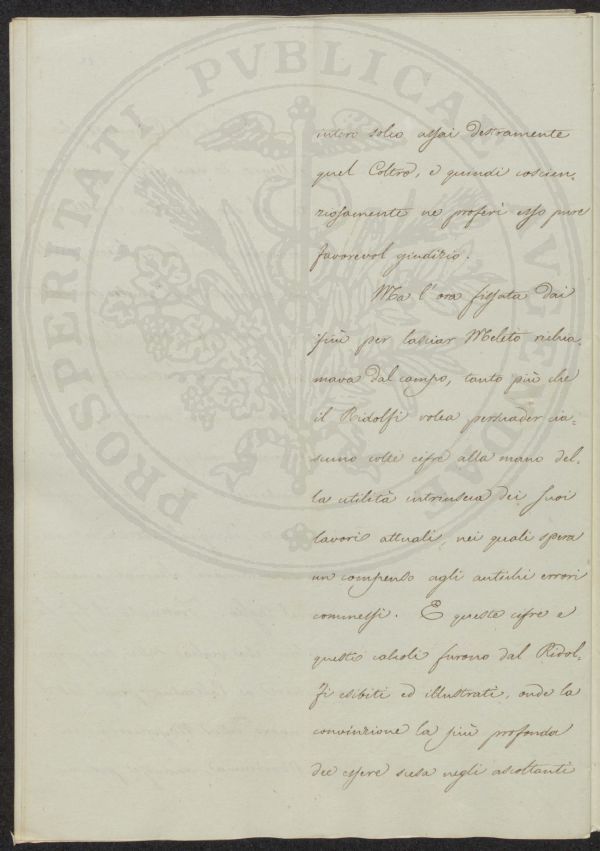 PROSPERITATI PVBLICAE AVGENDAE
interi solco assai destramente
quel Coltro, e quindi coscien,
ziosamente ne proferì esso pure
favorevol giudizio.
Ma l'ora fissata dai
più per lasciar Meleto richia,
mava dal campo, tanto più che
il Ridolfi volea persuader cia,
scuno colle cifre alla mano del,
la utilità intrinseca dei suoi
lavori attuali, nei quali spera
un compenso agli antichi errori
commessi. E queste cifre e
questi calcoli furono dal Ridol,
fi esibiti ed illustrati, onde la
convinzione la più profonda
dee essere scesa negli ascoltanti